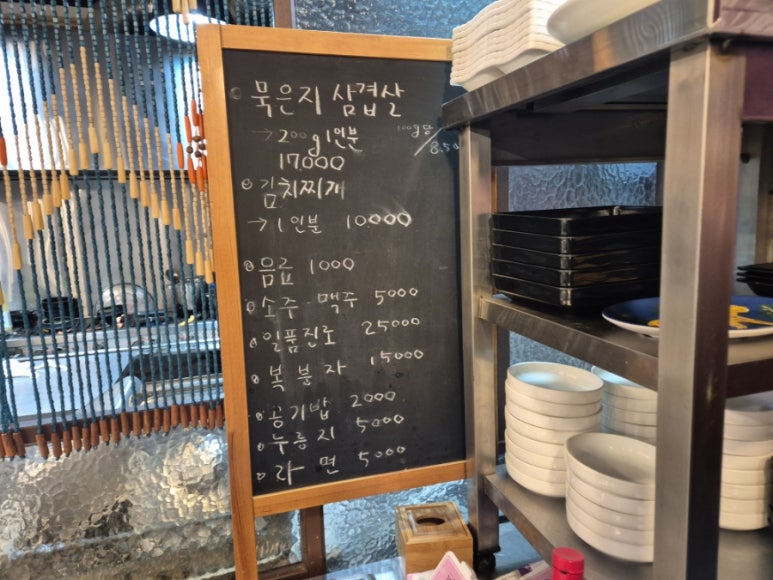 묵은지 삼겹살
→ 200g 1인분 100g당 / 8.50
17.000
김치찌개
→ 1인분 10.000
음료 1000
소주 맥주 5000
일품진로 25000
복분자 15000
공기밥 2000
누릉지 5000
라면 5000